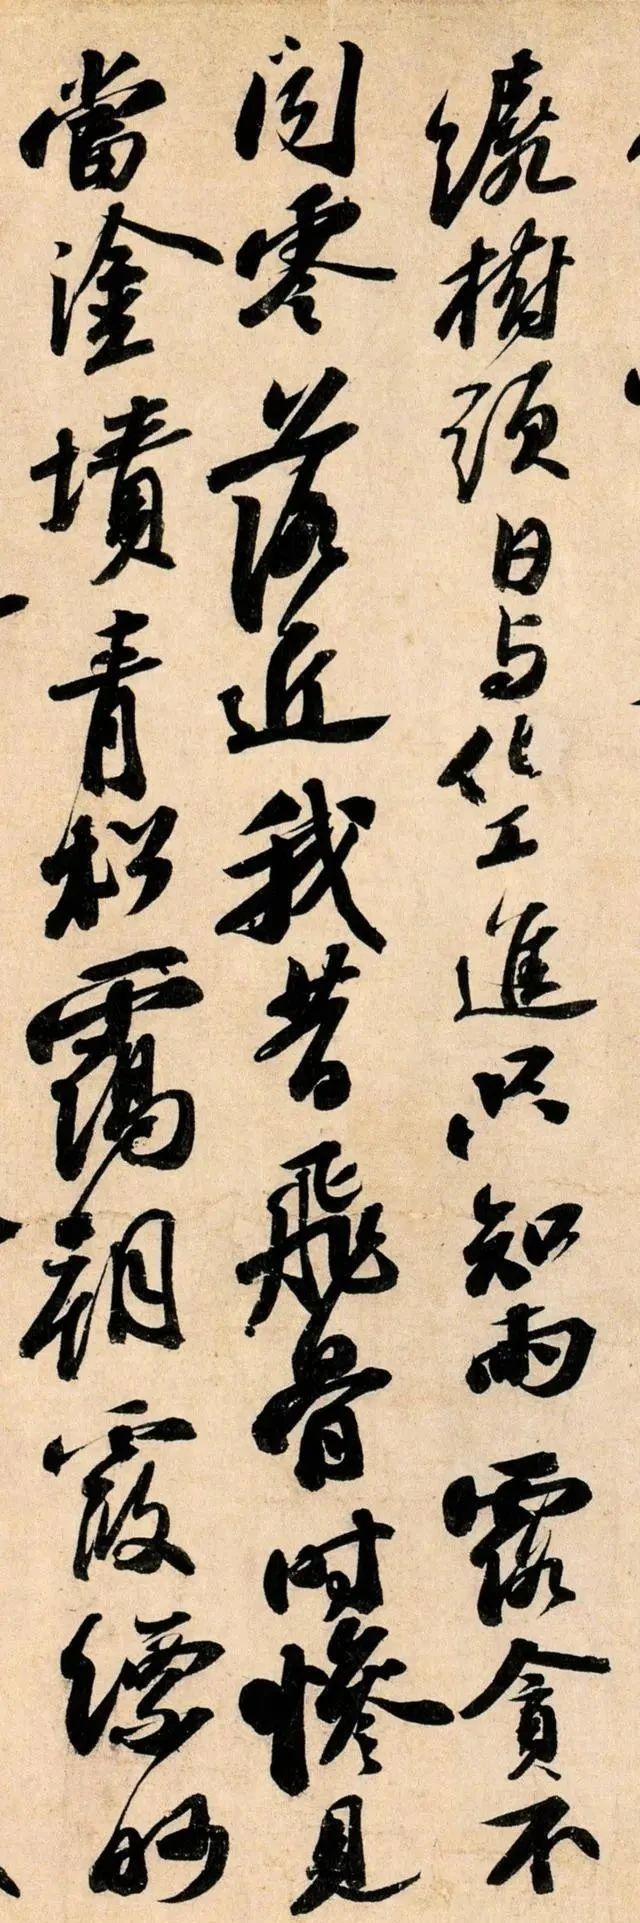 繞樹頭日与化工進只知雨露貪不
聞零落近我昔飛骨時慘見
當塗墳青松靄朝霞縹眇